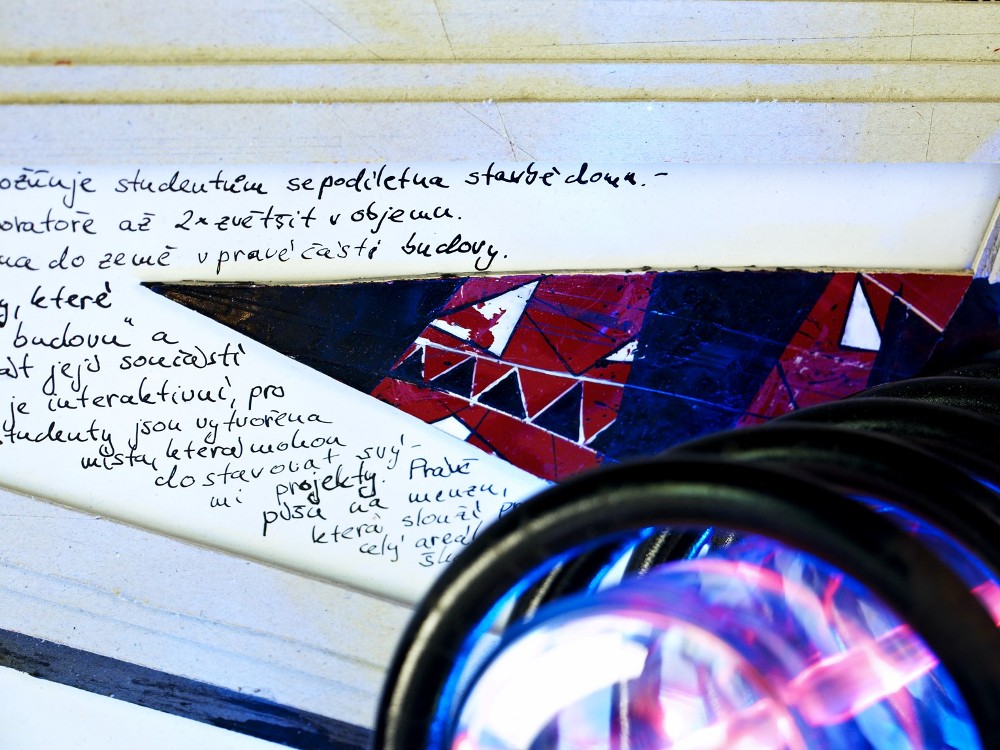 ožňuje studentům se podílet na stavbě domu.-
oratoře až 2x zvětšit v objemu.
na do země v pravé části budovy.
y, které
budovu" a
át její součástí
je interaktivní, pro
tudenty jsou vytvořena
místa, která mohou
dostavovat svý-
mi projekty. Právě
půsú na menzu,
která slouží pr
celý areál